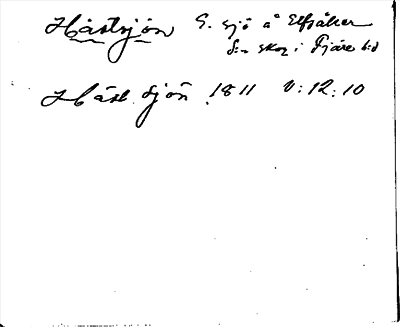 Hästsjön G. sjö å Elfsåker
s:n skog i Fjäre h:d
Häst Sjön 1811 V:12:10